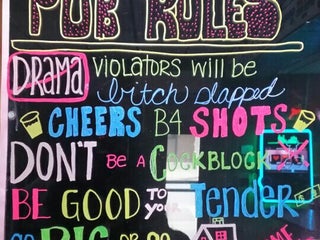 PUB RULES
DRAMA VIOLATORS WILL BE
bitch slapped
CHEERS B4 SHOTS
DON'T BE A COCKBLOCK
BE GOOD TO YOUR Tender
GO BIG OR GO